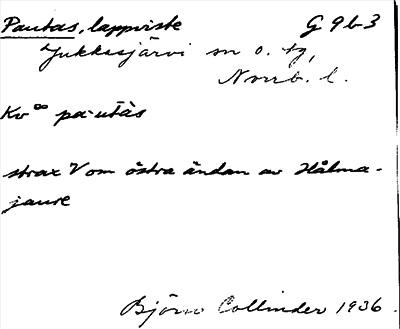 Pautas, lappviste G 9 b 3
Jukkasjärvi sn o. tg,
Norrb. l.
Kv∞ pa·utàs
strax V om östra ändan av Hålma-
jaure
Björn Collinder 1936.